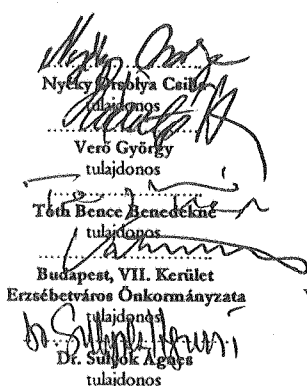 Nyéky Orsolya Csilla
tulajdonos
Verő György
tulajdonos
Tóth Bence Benedekné
tulajdonos
Budapest, VII. Kerület
Erzsébetváros Önkormányzata
tulajdonos
Dr. Sulyok Ágnes
tulajdonos